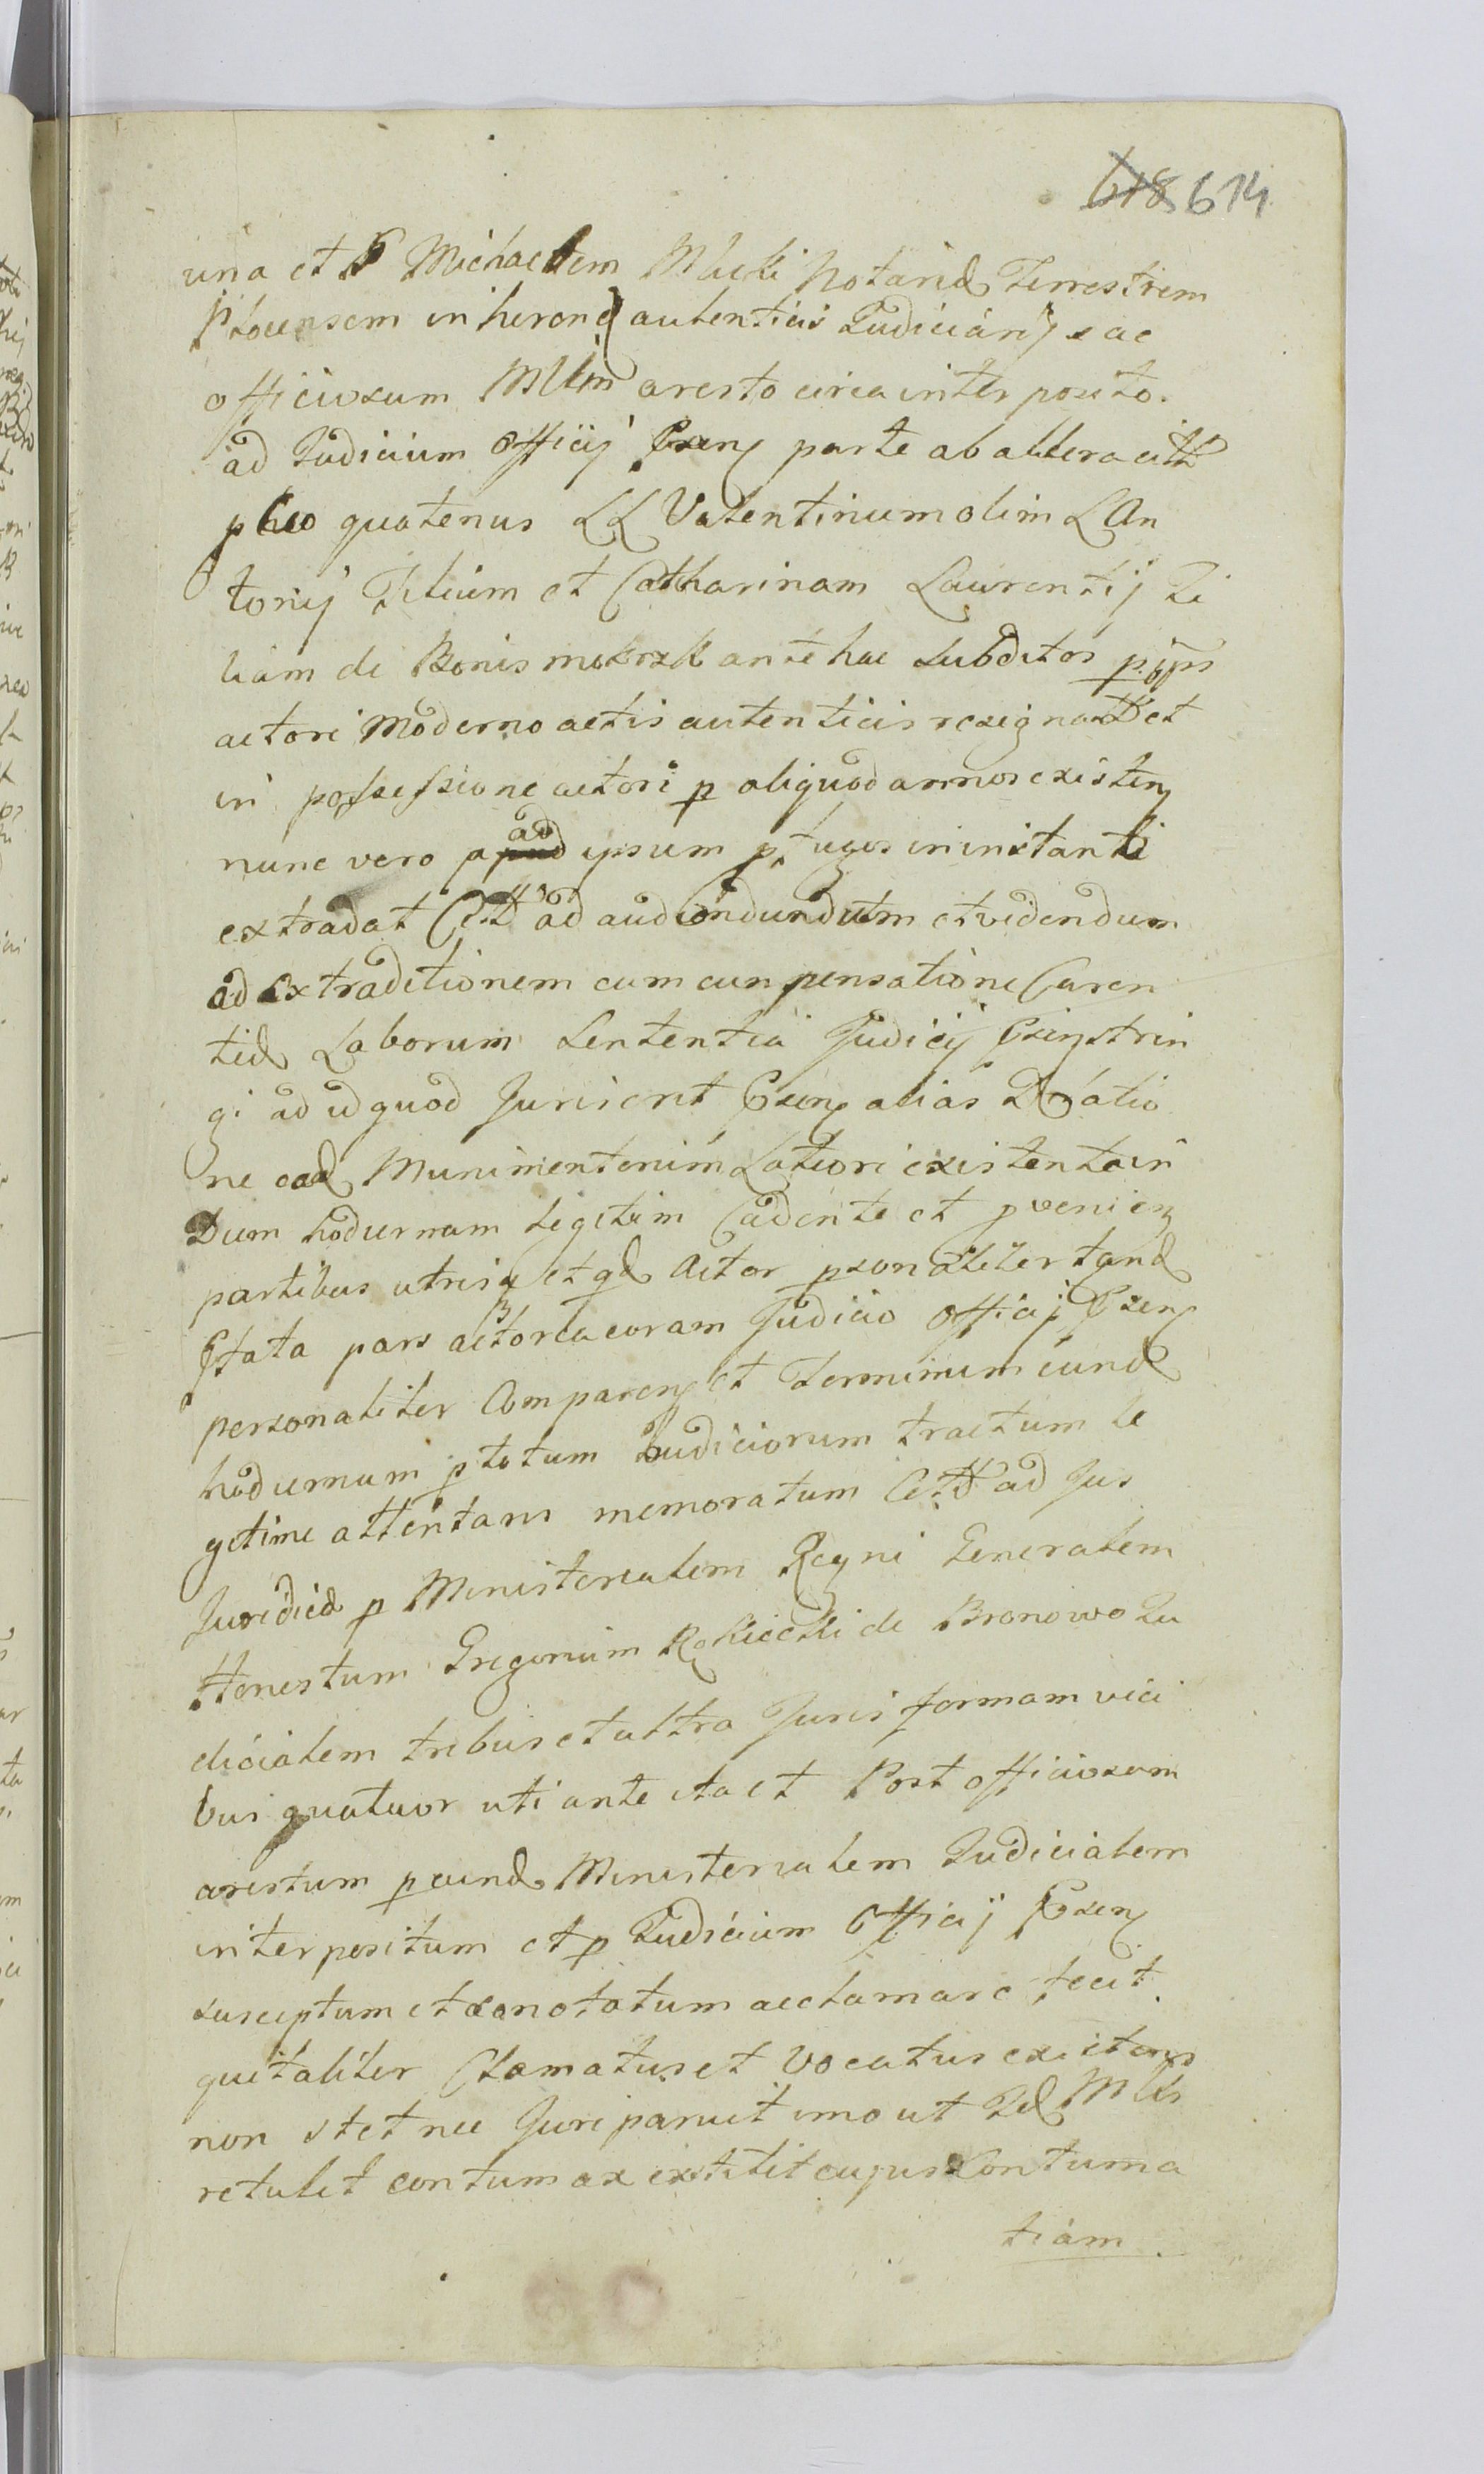 618 614
una et Michaelem Mlicki Notariū Terrestrem
Plocensem inherend autenticis Judiciarijs ac
officiosum Mlem aresto circa interposito.
ad Judicium Officij Pnsens parte ab altera citt
pleo quatenus LL Valentinum olim L An
tonij Filium et Catharinam Laurentij Fi
liam de Bonis mokrzk antehac subditos p
actori Moderno actis autenticis resignatt et
in possessione actori p aliquod annos existen
nunc vero ad ipsum p fugos in instanti
extradat Citt ad audiendundum et videndum
ad Extraditionem cum cunpensatione Caren
tid Laborum Sententia Judicij Pnsen strin
gi ad id quod Juris erit Pnsen alias Dratio
ne ead Munimentorum Latiori existenta in
Dum hodiernam legitim Cadente et pvenien
partibus utrisq et qd Actor psonaliter tand
Pstata pars actorea coram Judicio Officij Pnsen
personaliter Comparen et Terminum eund
hodiernum p totum Judiciorum tractum le
gitime attentans memoratum Citt ad Jus
Juridicd p Ministerialem Regni Generalem
Honestum Gregorium Rokicki de Bronowo Ju
dicialem tribus et ultra Juris formam vici
bus quatuor uti ante ita et Post officiosum
arestum p eund Ministerialem Judicialem
interpositum et p Judicium Officij Pnsen
susceptum et conotatum acclamare fecit.
qui taliter Clamatus et Vocatus existens
non stet nec Juri paruit imo ut Id Mlis
retulit contumax extitit cujus Contuma
tiam.